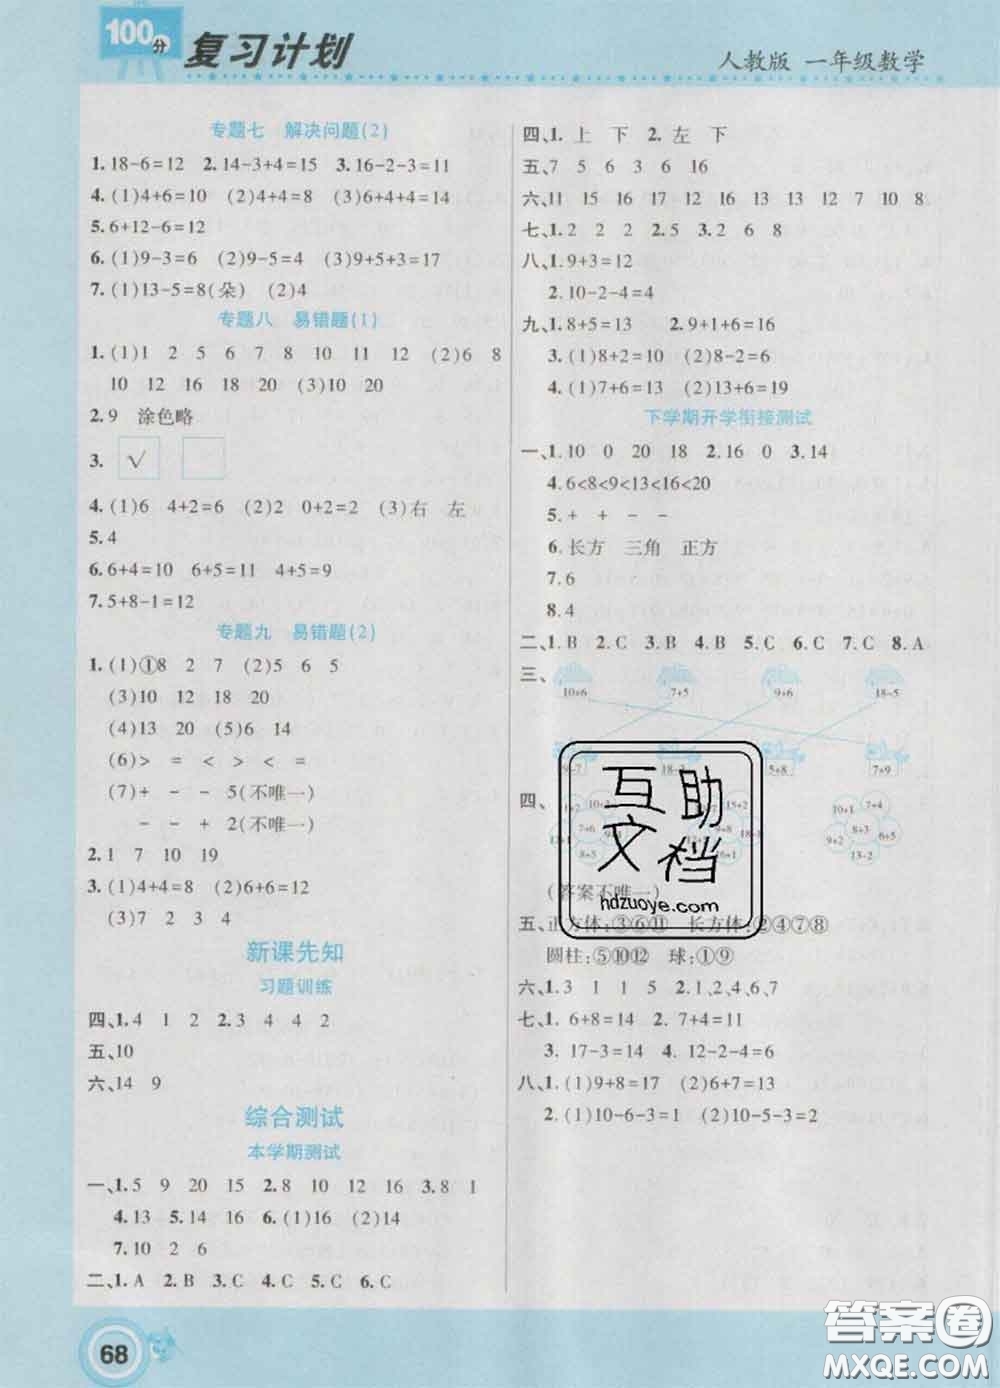 100分
复习计划
人教版 一年级数学
专题七 解决问题(2)
1. 18-6=12 2. 14-3+4=15 3. 16-2-3=11
4. (1)4+6=10 (2)4+4=8 (3)6+4+4=14
5. 6+12-6=12
6. (1)9-3=6 (2)9-5=4 (3)9+5+3=17
7. (1)13-5=8(朵) (2)4
专题八 易错题(1)
1. (1)1 2 5 6 7 8 10 11 12 (2)6 8
10 12 16 18 20 (3)10 20
2. 9 涂色略
3. √
4. (1)6 4+2=6 (2)2 0+2=2 (3)右 左
5. 4
6. 6+4=10 6+5=11 4+5=9
7. 5+8-1=12
专题九 易错题(2)
1. (1)①8 2 7 (2)5 6 5
(3)10 12 18 20
(4)13 20 (5)6 14
(6)> = < > < =
(7)+ - - 5(不唯一)
- - + 2(不唯一)
2. 1 7 10 19
3. (1)4+4=8 (2)6+6=12
(3)7 2 3 4
新课先知
习题训练
四、1. 4 1 2 2. 3 4 4 2
五、10
六、14 9
综合测试
本学期测试
一、1. 5 9 20 15 2. 8 10 12 16 3. 8 1
4. 13 5. 14 16 6. (1)16 (2)14
7. 10 2 6
二、1. A 2. B 3. C 4. C 5. C 6. C
68
四、1. 上 下 2. 左 下
五、7 5 6 3 6 16
六、11 15 16 17 12 16 13 12 7 10 8
七、1. 2 2 2 2. 5 3. 2 6 8
八、1. 9+3=12
2. 10-2-4=4
九、1. 8+5=13 2. 9+1+6=16
3. (1)8+2=10 (2)8-2=6
4. (1)7+6=13 (2)13+6=19
下学期开学衔接测试
一、1. 10 0 20 18 2. 16 0 3. 14
4. 6<8<9<13<16<20
5. + + - -
6. 长方 三角 正方
7. 6
8. 4
二、1. B 2. C 3. B 4. B 5. C 6. C 7. C 8. A
三、
10+6 7+5 9+6 18-5
9-7 18-3 5+8 7+9
四、
10+2 7+6 8+5
15+2 9+8 18-1 16+1
10+1 7+4 9+2 8+3 6+5 13-2
(答案不唯一)
五、正方体:③⑥⑪ 长方体:②④⑦⑧
圆柱:⑤⑩⑫ 球:①⑨
六、1. 3 1 1 5 2. 1、2、4、6、7
七、1. 6+8=14 2. 7+4=11
3. 17-3=14 4. 12-2-4=6
八、1. (1)9+8=17 (2)6+7=13
2. (1)10-6-3=1 (2)10-5-3=2
互助
文档
hdzuoye.com
答案圈
MXQE.COM